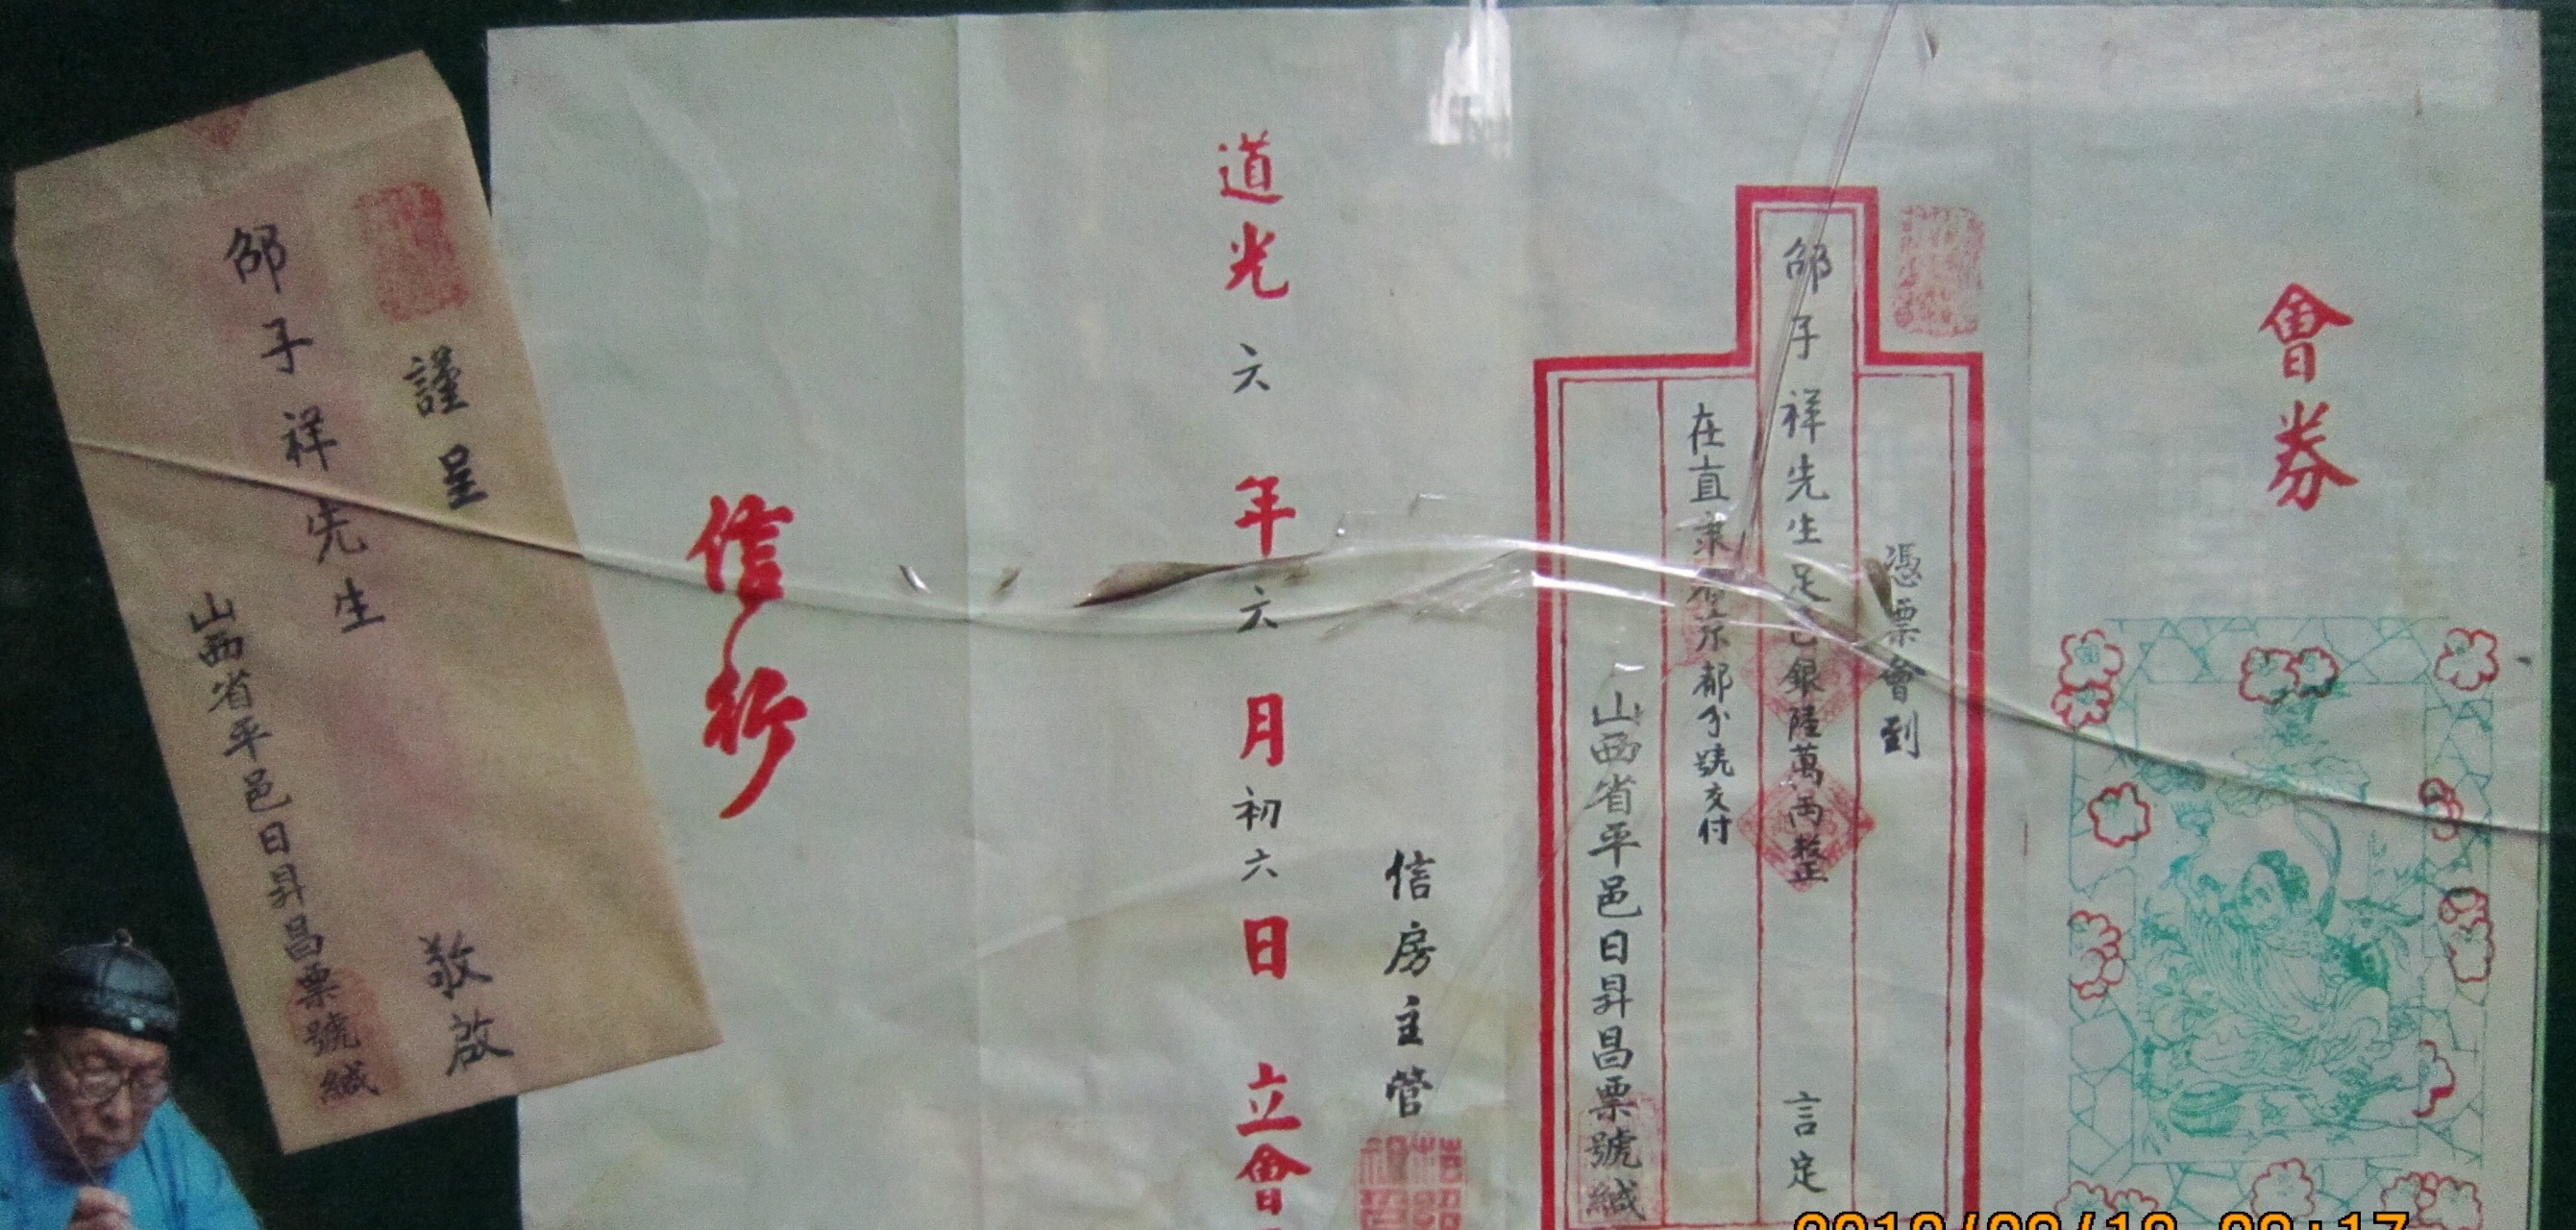 會券
憑票會到
邵子祥先生足色銀陸萬兩整 言定
在直隸省京都分號交付
山西省平邑日昇昌票號緘
信房主管
道光六年六月初六日 立會
信行
謹呈
邵子祥先生 敬啟
山西省平邑日昇昌票號緘